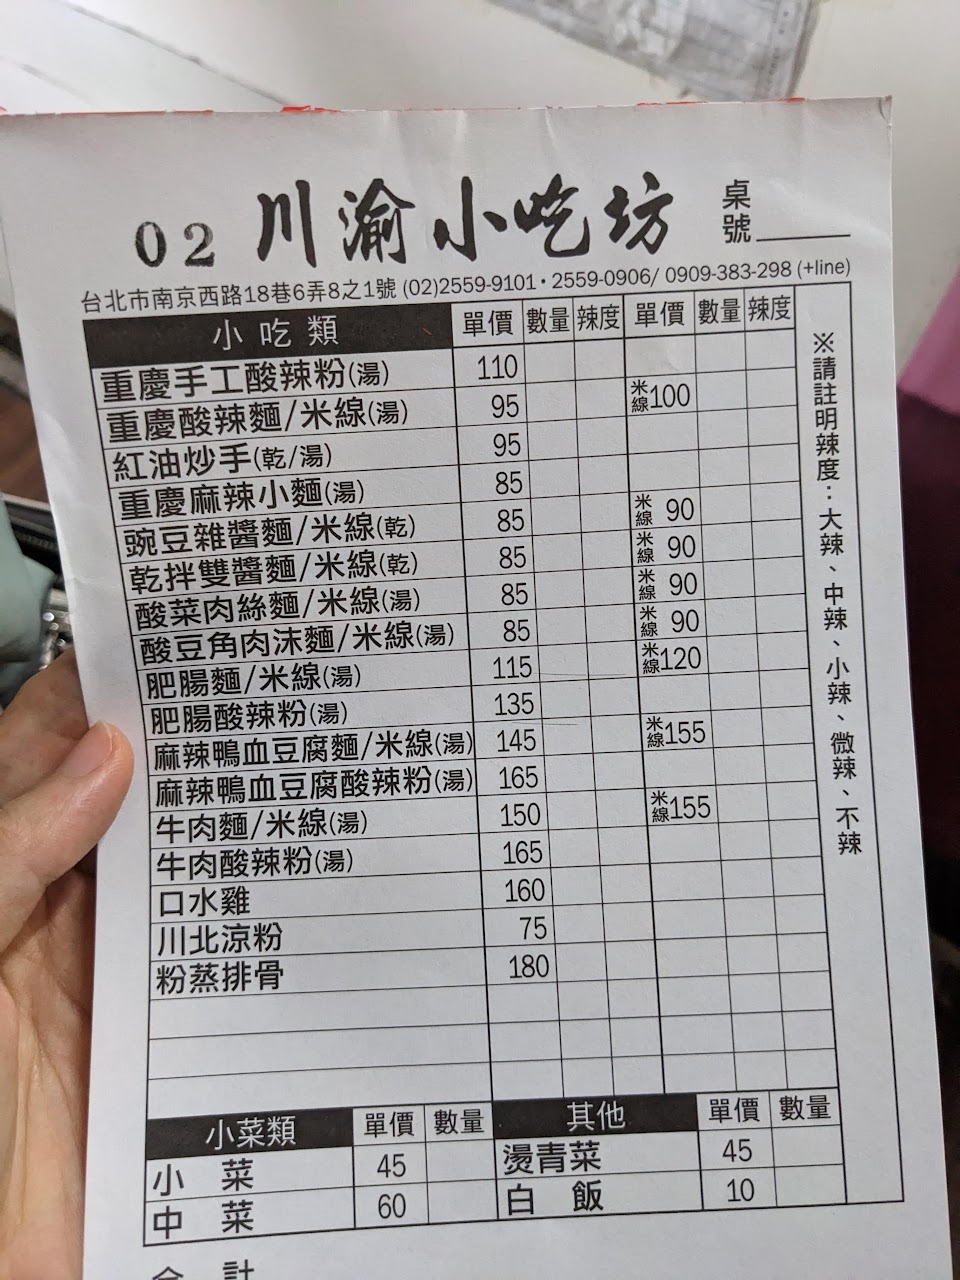 02 川渝小吃坊 桌號
台北市南京西路18巷6弄8之1號 (02)2559-9101・2559-0906/ 0909-383-298 (+line)
小吃類 單價 數量 辣度 單價 數量 辣度
重慶手工酸辣粉(湯) 110
重慶酸辣麵/米線(湯) 95 米線100
紅油炒手(乾/湯) 95
重慶麻辣小麵(湯) 85
豌豆雜醬麵/米線(乾) 85 米線 90
乾拌雙醬麵/米線(乾) 85 米線 90
酸菜肉絲麵/米線(湯) 85 米線 90
酸豆角肉沫麵/米線(湯) 85 米線 90
肥腸麵/米線(湯) 115 米線120
肥腸酸辣粉(湯) 135
麻辣鴨血豆腐麵/米線(湯) 145 米線155
麻辣鴨血豆腐酸辣粉(湯) 165
牛肉麵/米線(湯) 150 米線155
牛肉酸辣粉(湯) 165
口水雞 160
川北涼粉 75
粉蒸排骨 180
※請註明辣度：大辣、中辣、小辣、微辣、不辣
小菜類 單價 數量 其他 單價 數量
小 菜 45 燙青菜 45
中 菜 60 白 飯 10
合 計